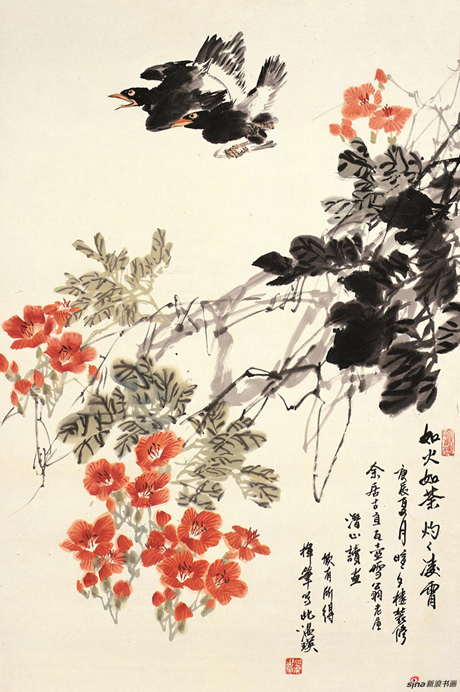 如火如荼灼〻凌霄
庚辰夏月時樓裝修
余居雪翁老屋
潛心讀畫
有所得
揮筆写此温瑛
sina新浪书画